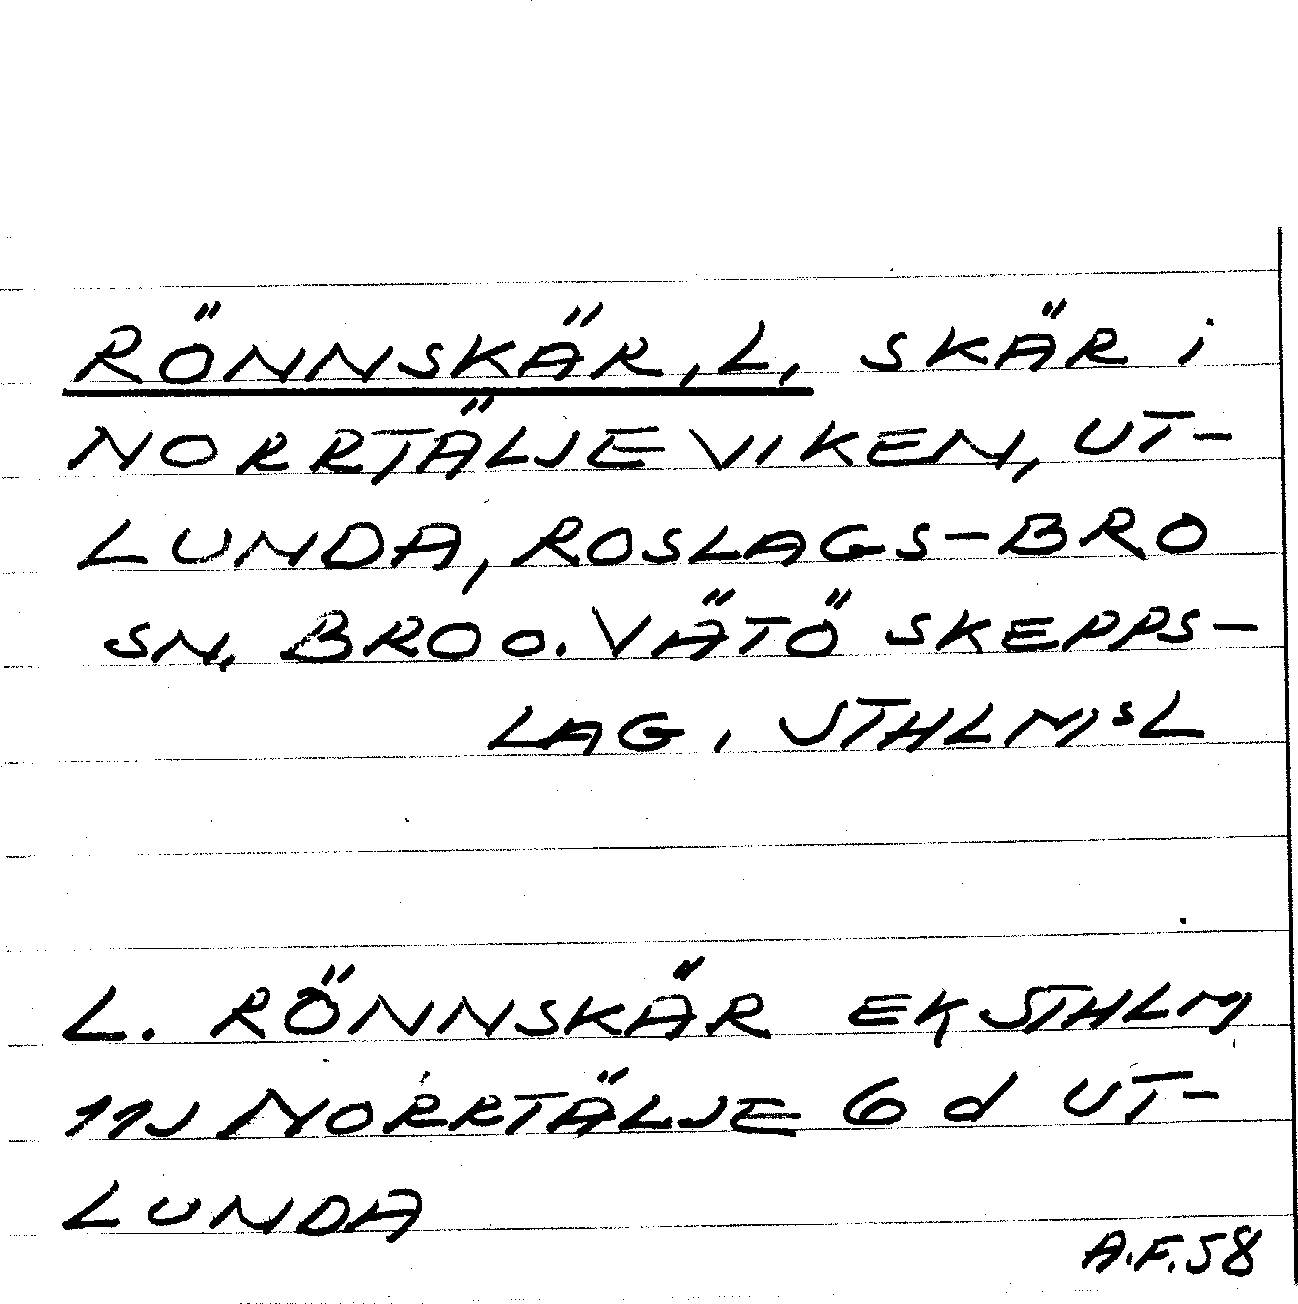 RÖNNSKÄR, L, SKÄR i
NORRTÄLJEVIKEN, UT-
LUNDA, ROSLAGS-BRO
SN. BRO o. VÄTÖ SKEPPS-
LAG, STHLMsL
L. RÖNNSKÄR EK STHLM
11J NORRTÄLJE 6 d UT-
LUNDA
A.F.58